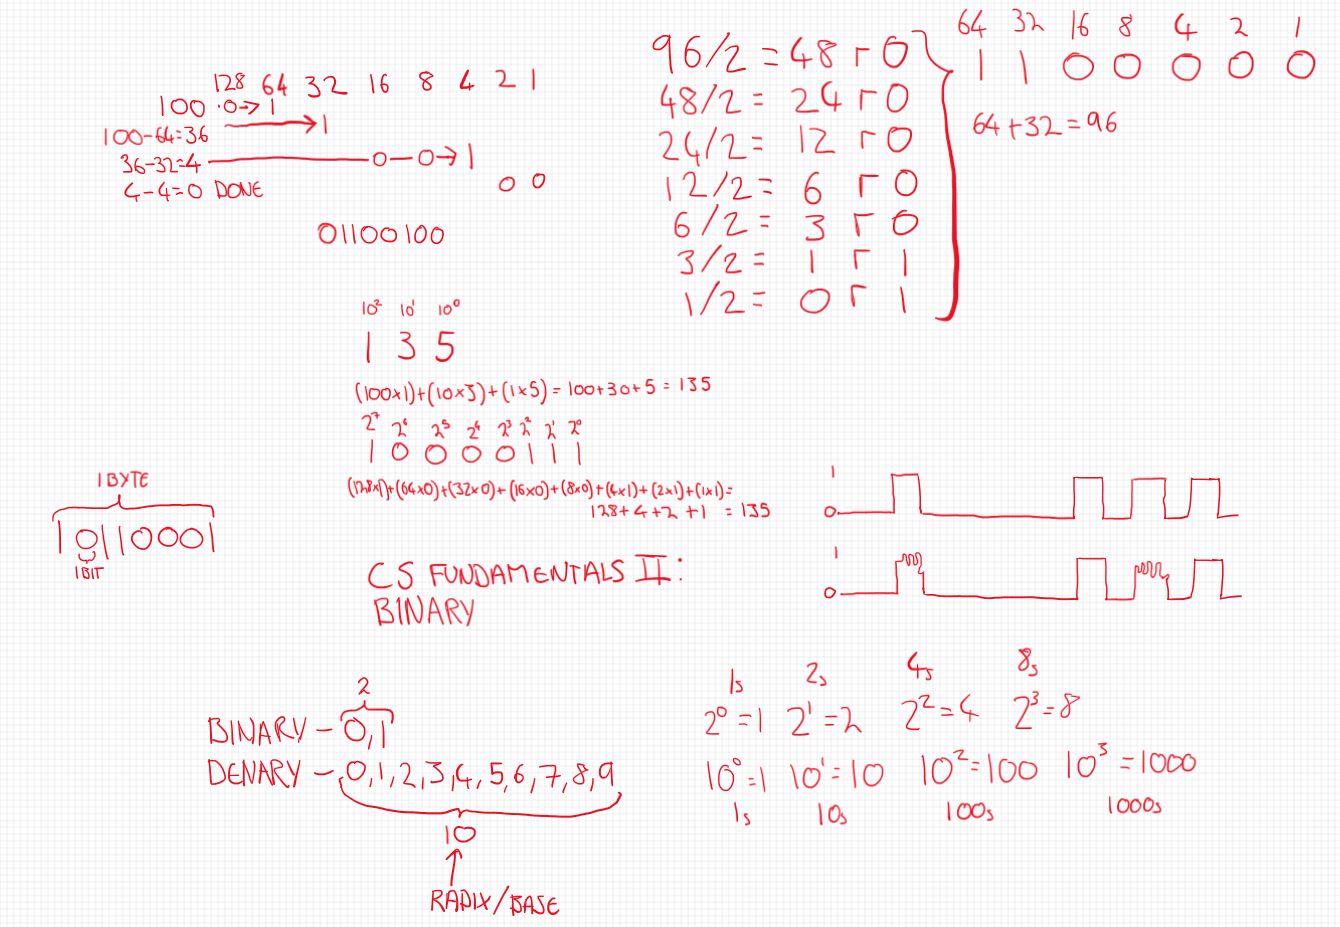 128 64 32 16 8 4 2 1
100 · 0 → 1
100-64=36 → 1
36-32=4 0 — 0 → 1
4-4=0 DONE 0 0
01100100
96/2 = 48 r 0
48/2 = 24 r 0
24/2 = 12 r 0
12/2 = 6 r 0
6/2 = 3 r 0
3/2 = 1 r 1
1/2 = 0 r 1
64 32 16 8 4 2 1
1 1 0 0 0 0 0
64+32=96
10² 10¹ 10⁰
1 3 5
(100×1)+(10×3)+(1×5)=100+30+5=135
2⁷ 2⁶ 2⁵ 2⁴ 2³ 2² 2¹ 2⁰
1 0 0 0 0 1 1 1
(128×1)+(64×0)+(32×0)+(16×0)+(8×0)+(4×1)+(2×1)+(1×1)=
128+4+2+1 = 135
1 BYTE
10110001
1 BIT
CS FUNDAMENTALS II:
BINARY
1
0
1
0
2
BINARY - 0,1
DENARY - 0,1,2,3,4,5,6,7,8,9
10
RADIX/BASE
1s 2s 4s 8s
2⁰=1 2¹=2 2²=4 2³=8
10⁰=1 10¹=10 10²=100 10³=1000
1s 10s 100s 1000s